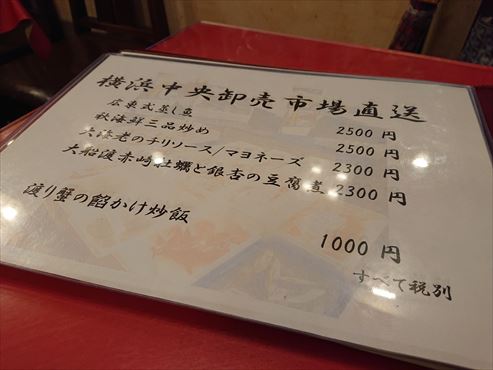 横浜中央卸売市場直送
広東式蒸し魚 2500円
秋海鮮三品炒め 2500円
大海老のチリソース/マヨネーズ 2300円
大船渡赤崎牡蠣と銀杏の豆腐煮 2300円
渡り蟹の餡かけ炒飯 1000円
すべて税別